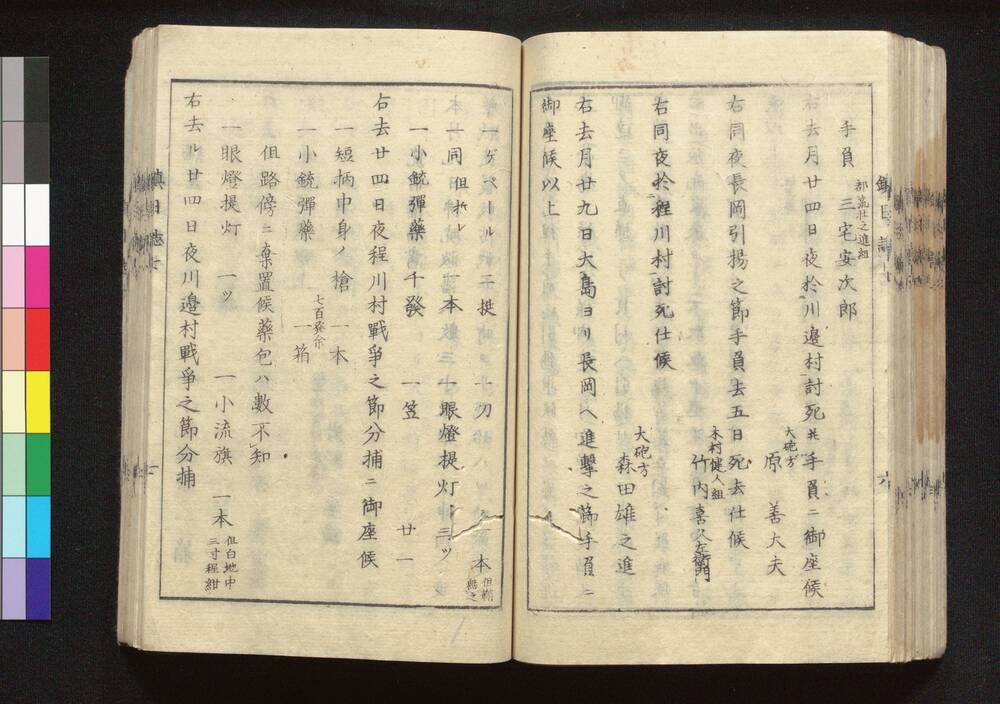 手負 三宅安次郎
都筑壮之進組
右去月廿四日夜於川邉村討死共手負ニ御座候
大砲方
原 善大夫
右同夜長岡引揚之節手負去五日死去仕候
木村健人組
竹内喜久左衛門
右同夜於程川村討死仕候
大砲方
森田雄之進
右去月廿九日大島ヨリ長岡ヘ進撃之節手負ニ
御座候以上
六
一ゲベール 二挺 一刀 本
但鞘
無之
一同 但折レ 一本 一眼燈提灯 三ツ
一小銃彈藥 千發 一笠 廿一
右去廿四日夜程川村戰爭之節分捕ニ御座候
一短柄巾身ノ槍 一本
一小銃彈藥 七百發余 一箱
但路傍ニ棄置候藥包ハ數不知
一眼燈提灯 一ツ 一小流旗 一本
但白地中
三寸程紺
右去ル廿四日夜川邉村戰爭之節分捕
鎮日誌七